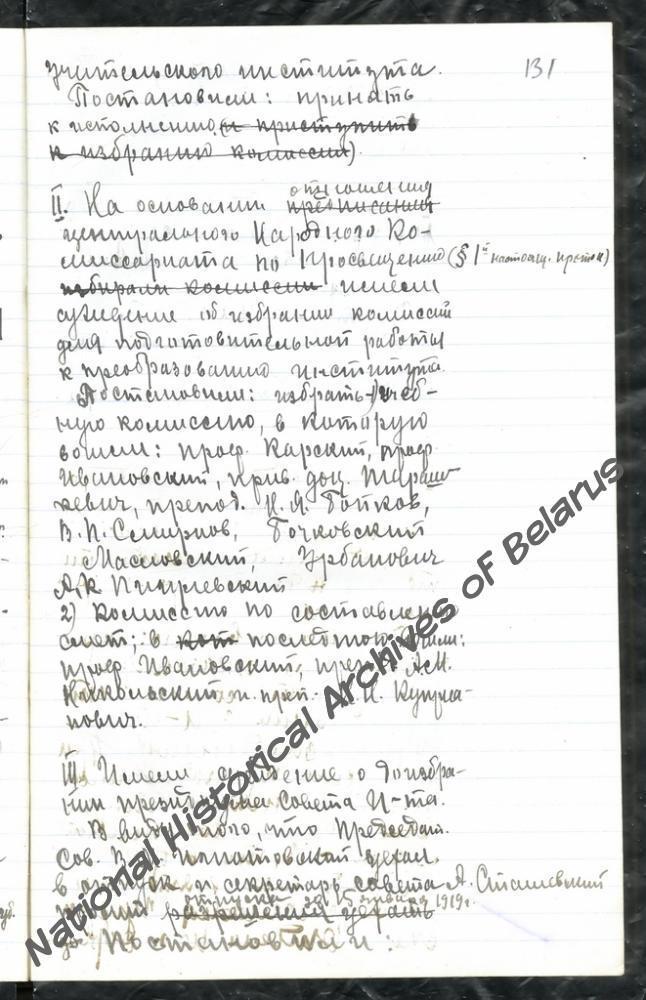 131
учительского института.
Постановили: принять
к исполнению (и приступить
к избранию комиссии).
отношения
II. На основании предписания
центрального Народного Ко-
миссариата по Просвещению (§ 1й настоящ. проток)
избирали комиссии имели
суждение об избрании комиссий
для подготовительной работы
к преобразованию института.
Постановили: избрать 1) учеб-
ную комиссию, в которую
вошли: проф. Карский, проф.
Ивановский, прив. доц. Тараш-
кевич, препод. Н. Я. Бойков,
В. П. Смирнов, Бочковский
Масловский, Урбанович
А. К.
2) Комиссию по составлен.
смет; в кот последнюю вошли:
проф. Ивановский, преп. А. М.
Никольский и преп. Куприа-
нович.
III. Имели суждение о доизбра-
нии президиума Совета И-та.
В виду того, что Председат.
Сов. В. Игнатовский уехал
в отпуск и секретарь совета А. Сташевский
отпуска до 15 января 1919 г.
разрешении уехать
Постановили:
National Historical Archives of Belarus